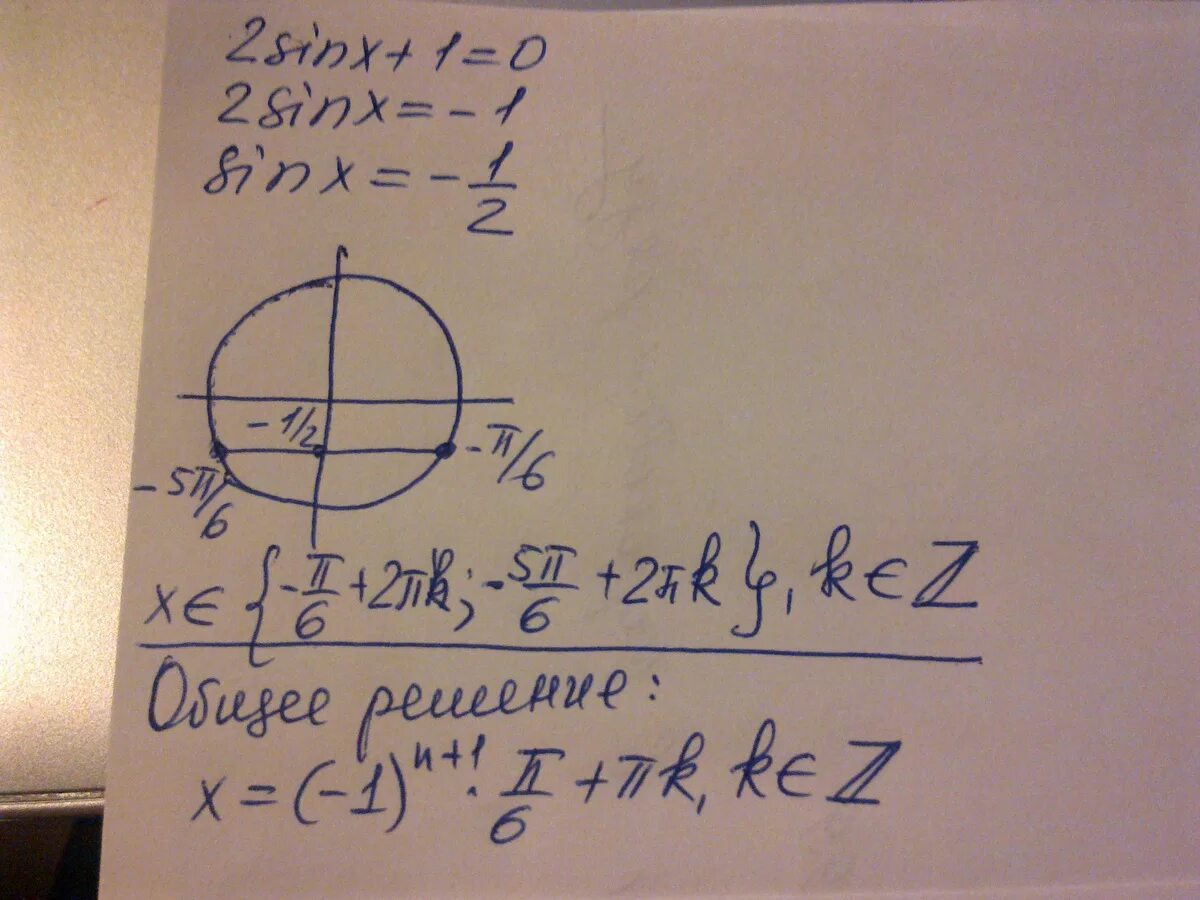 2sinx+1=0
2sinx=-1
sinx=-1/2
-1/2
-π/6
-5π/6
x∈{-π/6+2πk;-5π/6+2πk}, k∈ℤ
Общее решение:
x=(-1)^{n+1}·π/6+πk, k∈ℤ